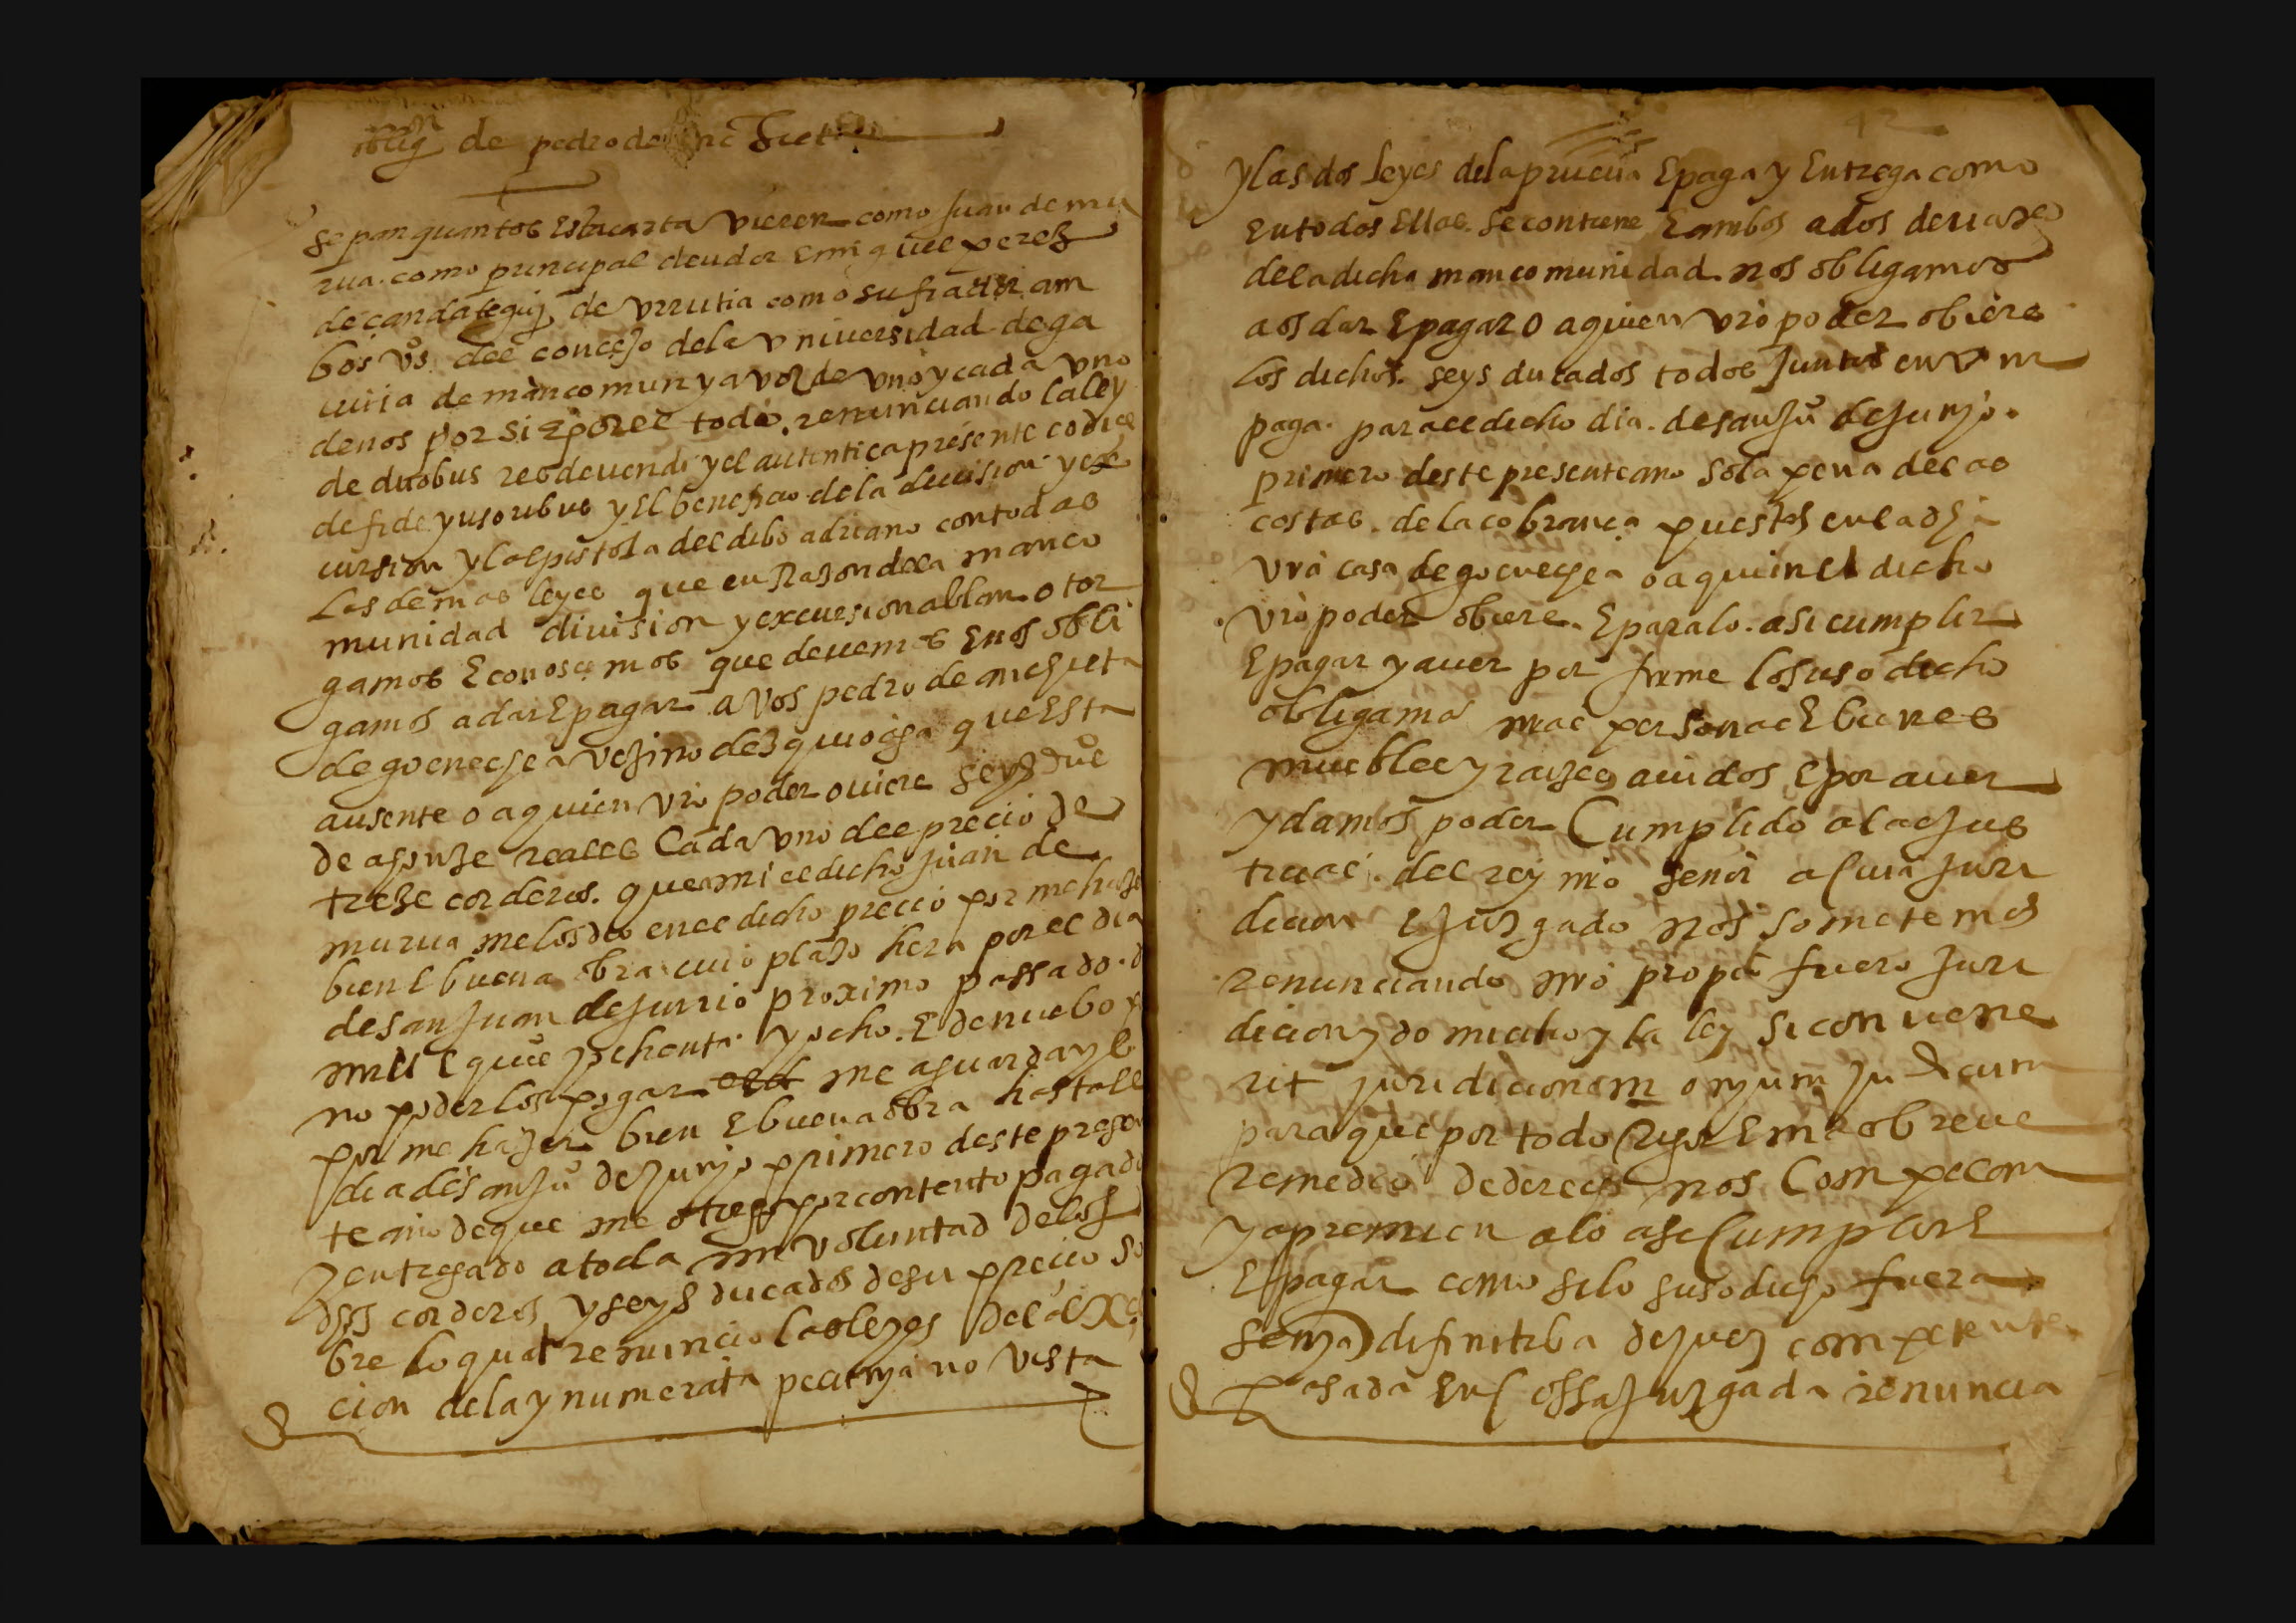 oblig.on de pedro de anchieta
Sepan quantos esta carta vieren como Juan de mu
rua como principal deudor E miguel perez
de candategui de vrrutia como su fiador am
bos vos del concejo dela vniuersidad de ga
uiria de mancomun y a voz de vno y cada vno
de nos por si E por el todo. renunciando la ley
de duobus reos deuendi y el autentica presente codice
de fide yusoribus y El beneficio de la diuision y ex
cursion y la epistola del dibo adriano con todas
las demas leyes que en Razon dela manco
munidad diuision y excursion ablan otor
gamos E conoscemos que deuemos E nos obli
gamos a dar E pagar a vos pedro de anchieta
de goenechea vezino de Ezquioga que Esta
ausente o a quien vro poder ouiere seys due
de a honze reales Cada vno del precio de
treze corderos. que a mi el dicho Juan de
murua me los dio en el dicho precio por me haze
bien E buena obra cuio plazo hera por el dia
de san Juan de Junio proximo passado. d
mill E qus ochenta y ocho. E de nuebo p
no poderlos pagar me aguarda y lo
por me hazer bien E buena obra hasta el
dia de san Ju.o de Junjo primero deste presen
te año de que me otorgo por contento pagado
y entregado a toda mi voluntad de los
dhos corderos y seys ducados de su precio so
bre lo qual renuncio las leyes de la exce
cion de la ynumerata pecunya no vista
42
y las dos leyes de la prueua E paga y Entrega como
En todos Ellas se contiene E ambos a dos deuaxo
de la dicha mancomunidad nos obligamos
a os dar E pagar o a quien vro poder obiere
los dichos. seys ducados todos Juntos en vna
paga. para el dicho dia. de san Ju.o de Junjo.
primero deste presente ano so la pena de las
costas. de la cobrança puestos en la dha
vra casa de goenechea o a quien el dicho
vro poder obiere. E para lo. asi cumplir
E pagar y auer por firme lo suso dicho
obligamos nras personas E bienes
muebles y raizes auidos E por auer
y damos poder Cumplido a las Jus
ticias. del rey nro señor a cuia Juri
dicion E Juzgado nos sometemos
renunciando nro propio fuero Juri
dicion y domicilio y la ley si conuene
rit juridicionem onjum judicum
para que por todo Rigor E mas obreue
remedio de derecho nos Compelan
y apremien a lo asi Cumplir E
E pagar como si lo suso dicho fuera
sentencia difinitiba de juez competente
pasada En cossa Juzgada renuncia